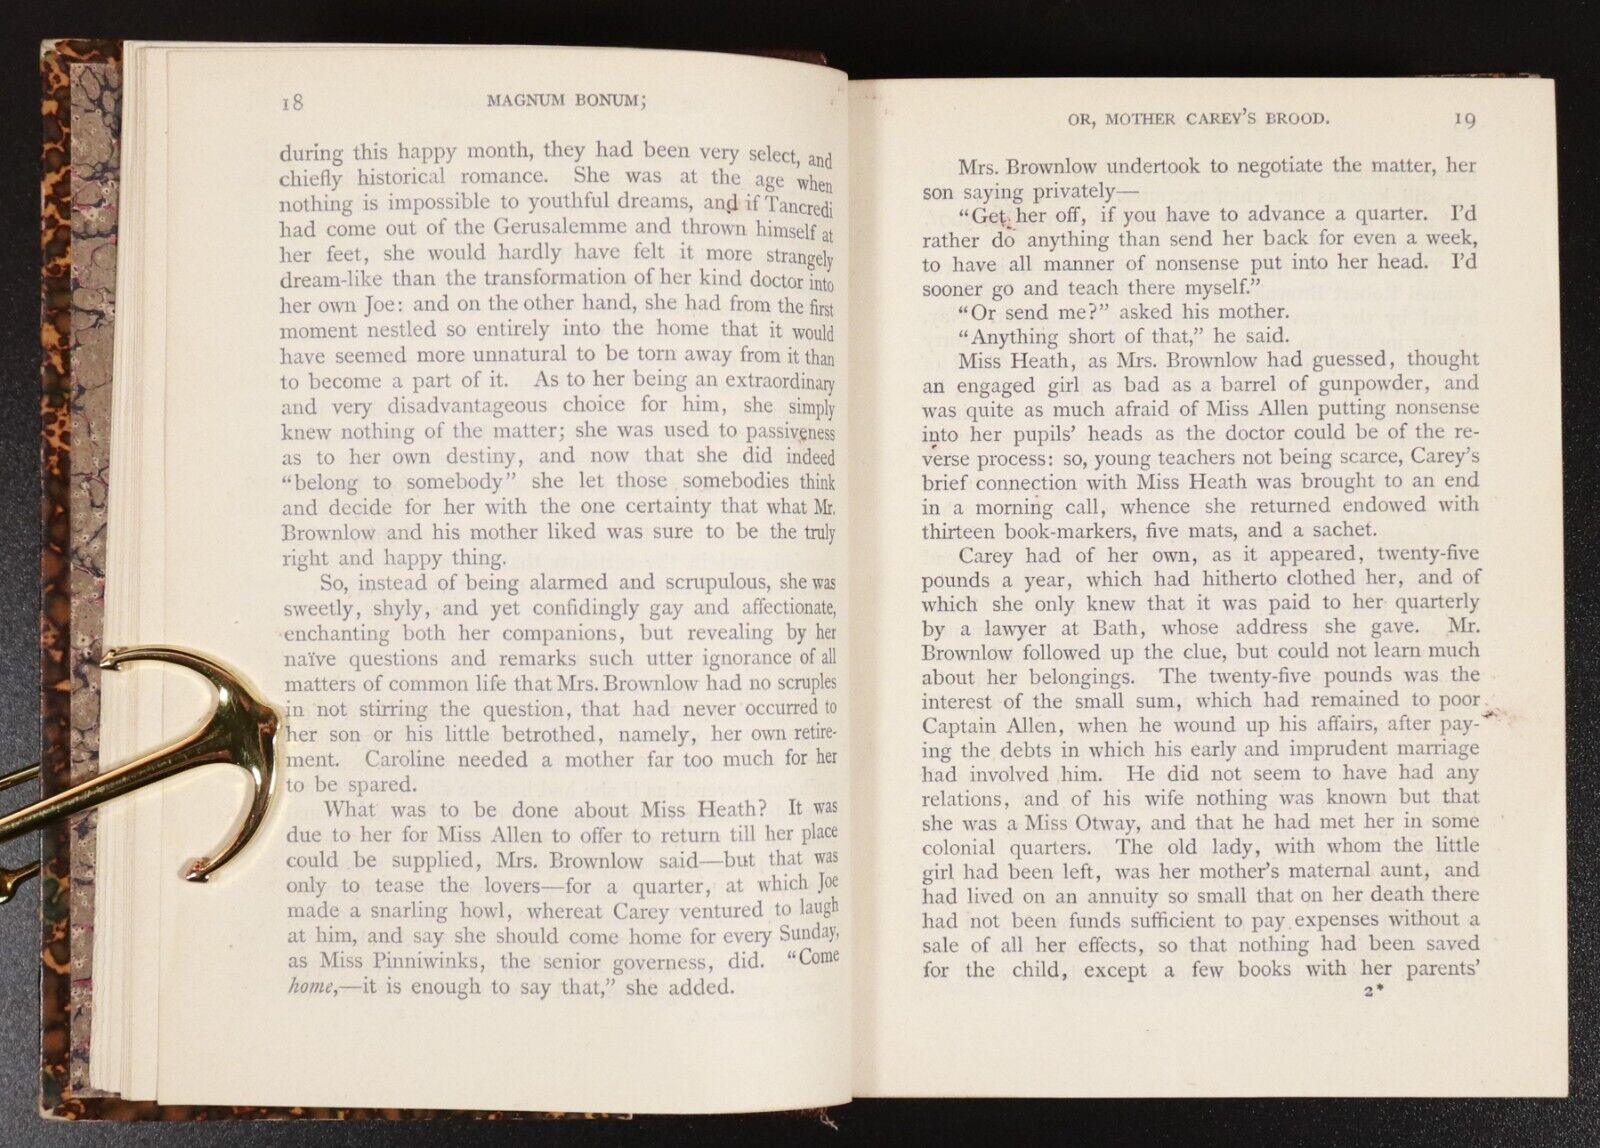 18 MAGNUM BONUM;
during this happy month, they had been very select, and
chiefly historical romance. She was at the age when
nothing is impossible to youthful dreams, and if Tancredi
had come out of the Gerusalemme and thrown himself at
her feet, she would hardly have felt it more strangely
dream-like than the transformation of her kind doctor into
her own Joe: and on the other hand, she had from the first
moment nestled so entirely into the home that it would
have seemed more unnatural to be torn away from it than
to become a part of it. As to her being an extraordinary
and very disadvantageous choice for him, she simply
knew nothing of the matter; she was used to passiveness
as to her own destiny, and now that she did indeed
“belong to somebody” she let those somebodies think
and decide for her with the one certainty that what Mr.
Brownlow and his mother liked was sure to be the truly
right and happy thing.
So, instead of being alarmed and scrupulous, she was
sweetly, shyly, and yet confidingly gay and affectionate,
enchanting both her companions, but revealing by her
naïve questions and remarks such utter ignorance of all
matters of common life that Mrs. Brownlow had no scruples
in not stirring the question, that had never occurred to
her son or his little betrothed, namely, her own retire-
ment. Caroline needed a mother far too much for her
to be spared.
What was to be done about Miss Heath? It was
due to her for Miss Allen to offer to return till her place
could be supplied, Mrs. Brownlow said—but that was
only to tease the lovers—for a quarter, at which Joe
made a snarling howl, whereat Carey ventured to laugh
at him, and say she should come home for every Sunday,
as Miss Pinniwinks, the senior governess, did. “Come
home,—it is enough to say that,” she added.
OR, MOTHER CAREY’S BROOD. 19
Mrs. Brownlow undertook to negotiate the matter, her
son saying privately—
“Get her off, if you have to advance a quarter. I’d
rather do anything than send her back for even a week,
to have all manner of nonsense put into her head. I’d
sooner go and teach there myself.”
“Or send me?” asked his mother.
“Anything short of that,” he said.
Miss Heath, as Mrs. Brownlow had guessed, thought
an engaged girl as bad as a barrel of gunpowder, and
was quite as much afraid of Miss Allen putting nonsense
into her pupils’ heads as the doctor could be of the re-
verse process: so, young teachers not being scarce, Carey’s
brief connection with Miss Heath was brought to an end
in a morning call, whence she returned endowed with
thirteen book-markers, five mats, and a sachet.
Carey had of her own, as it appeared, twenty-five
pounds a year, which had hitherto clothed her, and of
which she only knew that it was paid to her quarterly
by a lawyer at Bath, whose address she gave. Mr.
Brownlow followed up the clue, but could not learn much
about her belongings. The twenty-five pounds was the
interest of the small sum, which had remained to poor
Captain Allen, when he wound up his affairs, after pay-
ing the debts in which his early and imprudent marriage
had involved him. He did not seem to have had any
relations, and of his wife nothing was known but that
she was a Miss Otway, and that he had met her in some
colonial quarters. The old lady, with whom the little
girl had been left, was her mother’s maternal aunt, and
had lived on an annuity so small that on her death there
had not been funds sufficient to pay expenses without a
sale of all her effects, so that nothing had been saved
for the child, except a few books with her parents’
2*